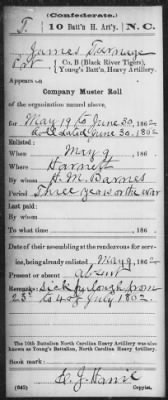 (Confederate.)
T. 10 Batt'n H. Art'y. N.C.
James Turnage
Pvt Co. B (Black River Tigers),
Young's Batt'n, Heavy Artillery.
Appears on
Company Muster Roll
of the organization named above,
for May 19 to June 30, 1862
Roll dated June 30, 1862
Enlisted:
When May 9, 186 .
Where Harnett
By whom H. M. Barnes
Period Three years or the war
Last paid:
By whom
To what time , 186 .
Date of their assembling at the rendezvous for service,
being already enlisted May 9, 1862
Present or absent absent
Remarks: Sick furlough from
23d to 4 of July 1862.
The 10th Battalion North Carolina Heavy Artillery was also
known as Young's Battalion, North Carolina Heavy Artillery.
Book mark:
(642)
Copyist.